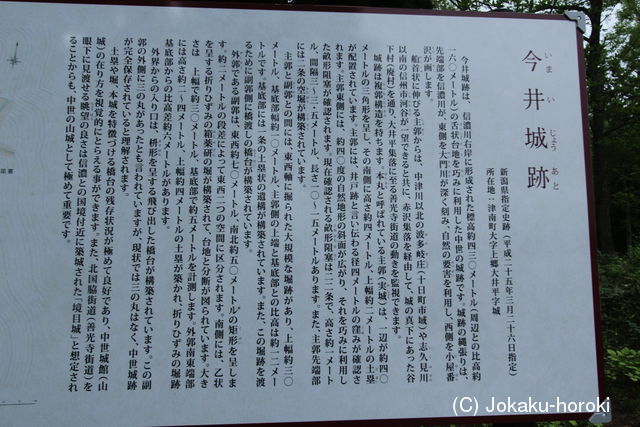 今井城跡
いまいじょうあと
新潟県指定史跡(平成二十五年三月二十六日指定)
所在地:津南町大字上郷大井平字城
今井城跡は、信濃川右岸に形成された標高約四三〇メートル(周辺との比高約
一六〇メートル)の舌状台地を巧みに利用した中世の城跡です。城跡の縄張りは、
先端部を信濃川が、東側を大門川が深く刻み、自然の要害を利用し、西側を小屋番
沢が画します。
船首状に伸びる主郭からは、中津川以北の波多岐庄(十日町市域)や志久見川
以南の信州市河谷が一望できると共に、赤沢集落を経由して、城の真下にあった谷
下村(廃村)を通り、大井平集落に至る善光寺街道の動きを監視できます。
城跡は複郭構造を持ちます。本丸と呼ばれている主郭(実城)は、一辺が約四〇
メートルの三角形を呈し、その南側に高さ約四メートル、上幅約二メートルの土塁
が配置されています。主郭には、井戸跡と言い伝わる径四メートルの窪みが確認さ
れます。主郭東側には、約四〇度の自然地形の斜面が広がり、それを巧みに利用し
た畝形阻塞が確認されます。現在確認される畝形阻塞は二二条で、高さ約一メート
ル、間隔三〜三・五メートル、長さ一〇〜一五メートルあります。また、主郭先端部
には二条の空堀が構築されています。
主郭と副郭との間には、東西軸に掘られた大規模な堀跡があり、上幅約三〇
メートル、基底部幅約一〇メートル・主郭側の上端と基底部との比高は約一二メー
トルです。基底部には一条の土塁状の遺構が構築されています。また、この堀跡を渡
るために副郭側に橋渡しの橋台が構築されています。
外郭である副郭は、東西約七〇メートル、南北約五〇メートルの矩形を呈しま
す。約二メートルの段差によって東西二つの空間に区分されます。南側には、乙状
を呈する折りひずみの箱薬研の堀が構築されて、台地と分断が図られています。大き
さは、上幅で約三〇メートル、基底部で約五メートルを計測します。外郭南東端部
には高さ約三・四メートル、上幅約四メートルの土塁が築かれ、折りひずみの堀跡
基底部からの比高差約八メートルがあります。
外界からの入り口は、枡形を呈する飛び出した橋台が構築されています。この副
郭の外側に三の丸があったとも言われていますが、現状では三の丸はなく、中世城跡
が完全保存されていると理解されます。
土塁や堀、本城を特徴づける橋台の残存状況が極めて良好であり、中世城館(山
城)の在り方を視覚的にとらえる事ができます。また、北国脇街道(善光寺街道)を
眼下に見渡せる眺望の良さは信濃との国境付近に築城された「境目城」と想定され
ることからも、中世の山城として極めて重要です。
(C) Jokaku-horoki